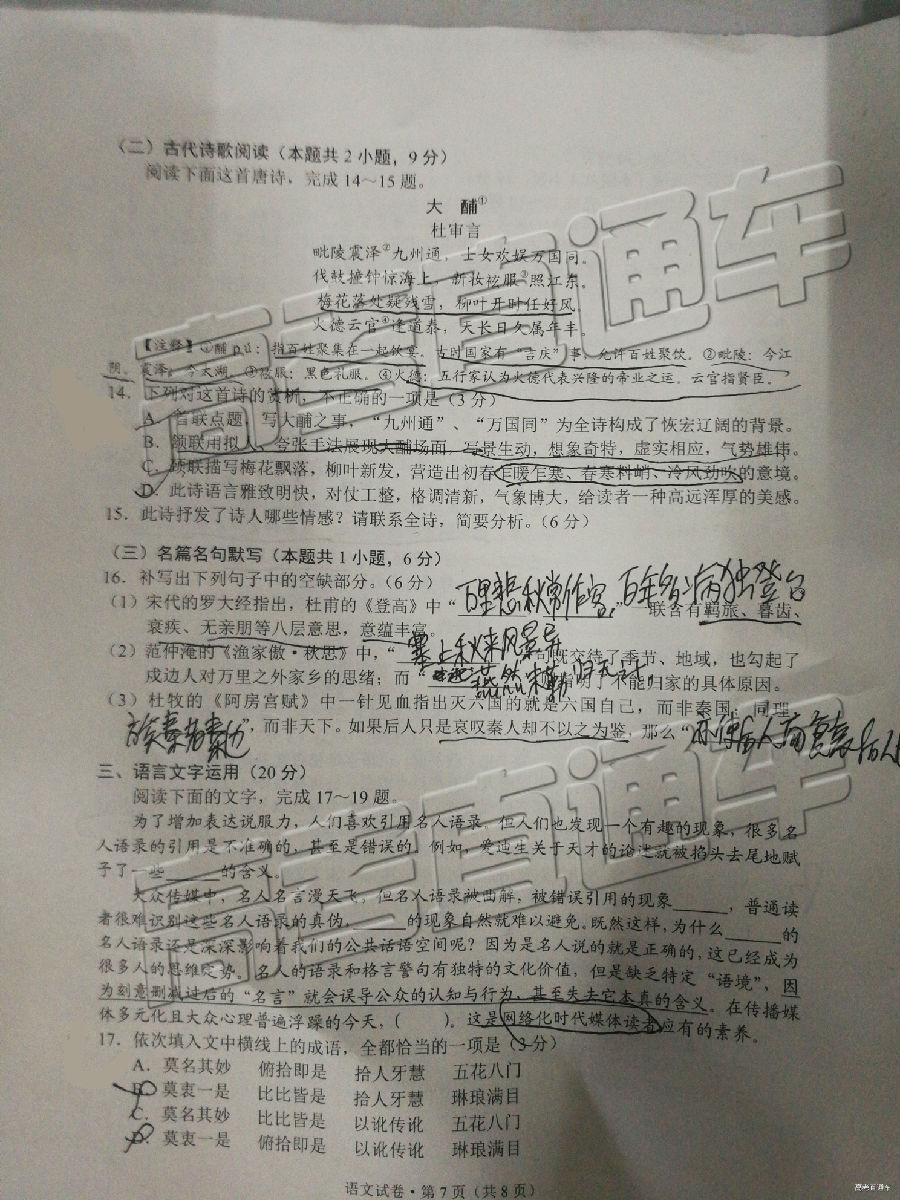 （二）古代诗歌阅读（本题共2小题，9分）
阅读下面这首唐诗，完成14～15题。
大 酺①
杜审言
毗陵震泽②九州通，士女欢娱万国同。
伐鼓撞钟惊海上，新妆袨服③照江东。
梅花落处疑残雪，柳叶开时任好风。
火德云官④逢道泰，天长日久属年丰。
【注释】①酺pú：指百姓聚集在一起饮宴。古时国家有“吉庆”事，允许百姓聚饮。②毗陵：今江
阴。震泽：今太湖。③袨服：黑色礼服。④火德：五行家认为火德代表兴隆的帝业之运。云官指贤臣。
14．下列对这首诗的赏析，不正确的一项是（3分）
A．首联点题，写大酺之事，“九州通”、“万国同”为全诗构成了恢宏辽阔的背景。
B．颔联用拟人、夸张手法展现大酺场面，写景生动，想象奇特，虚实相应，气势雄伟。
C．颈联描写梅花飘落，柳叶新发，营造出初春乍暖乍寒、春寒料峭、冷风劲吹的意境。
D．此诗语言雅致明快，对仗工整，格调清新，气象博大，给读者一种高远浑厚的美感。
15．此诗抒发了诗人哪些情感？请联系全诗，简要分析。（6分）
（三）名篇名句默写（本题共1小题，6分）
16．补写出下列句子中的空缺部分。（6分）
（1）宋代的罗大经指出，杜甫的《登高》中“万里悲秋常作客，百年多病独登台”联含有羁旅、暮齿、
衰疾、无亲朋等八层意思，意蕴丰富。
（2）范仲淹的《渔家傲·秋思》中，“塞上秋来风景异句既交待了季节、地域，也勾起了
戍边人对万里之外家乡的思绪；而“燕然未勒指明了不能归家的具体原因。
（3）杜牧的《阿房宫赋》中一针见血指出灭六国的就是六国自己，而非秦国；同理，
“族秦者秦也”，而非天下。如果后人只是哀叹秦人却不以之为鉴，那么“亦使后人而复哀后人
三、语言文字运用（20分）
阅读下面的文字，完成17～19题。
为了增加表达说服力，人们喜欢引用名人语录。但人们也发现一个有趣的现象，很多名
人语录的引用是不准确的，甚至是错误的。例如，爱迪生关于天才的论述就被掐头去尾地赋
予了一些______的含义。
大众传媒中，名人名言漫天飞。但名人语录被曲解，被错误引用的现象______，普通读
者很难识别这些名人语录的真伪，______的现象自然就难以避免。既然这样，为什么______的
名人语录还是深深影响着我们的公共话语空间呢？因为是名人说的就是正确的，这已经成为
很多人的思维定势。名人的语录和格言警句有独特的文化价值，但是缺乏特定“语境”，因
为刻意删减过后的“名言”就会误导公众的认知与行为，甚至失去它本真的含义。在传播媒
体多元化且大众心理普遍浮躁的今天，（　　）。这是网络化时代媒体读者应有的素养。
17．依次填入文中横线上的成语，全都恰当的一项是（3分）
A．莫名其妙 俯拾即是 拾人牙慧 五花八门
B．莫衷一是 比比皆是 拾人牙慧 琳琅满目
C．莫名其妙 比比皆是 以讹传讹 五花八门
D．莫衷一是 俯拾即是 以讹传讹 琳琅满目
语文试卷·第7页（共8页）
高考直通车
高考直通车
高考直通车